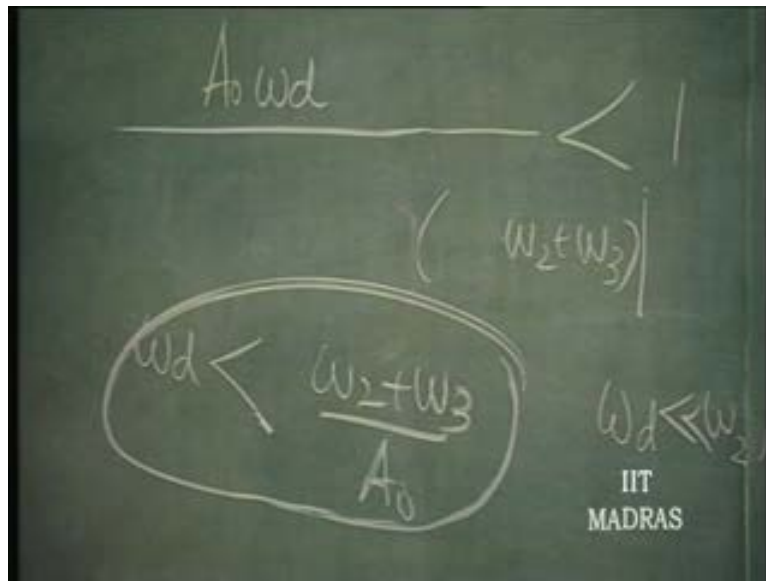 A₀ ωd
< 1
( ω₂+ω₃)
ωd < ω₂+ω₃
A₀
ωd << ω₂,
IIT
MADRAS